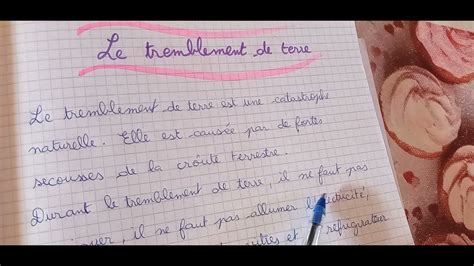 Le tremblement de terre
Le tremblement de terre est une catastrophe
naturelle. Elle est causée par de fortes
secousses de la croûte terrestre.
Durant le tremblement de terre, il ne faut pas
il ne faut pas allumer l'électricité,
et réfrigérateur